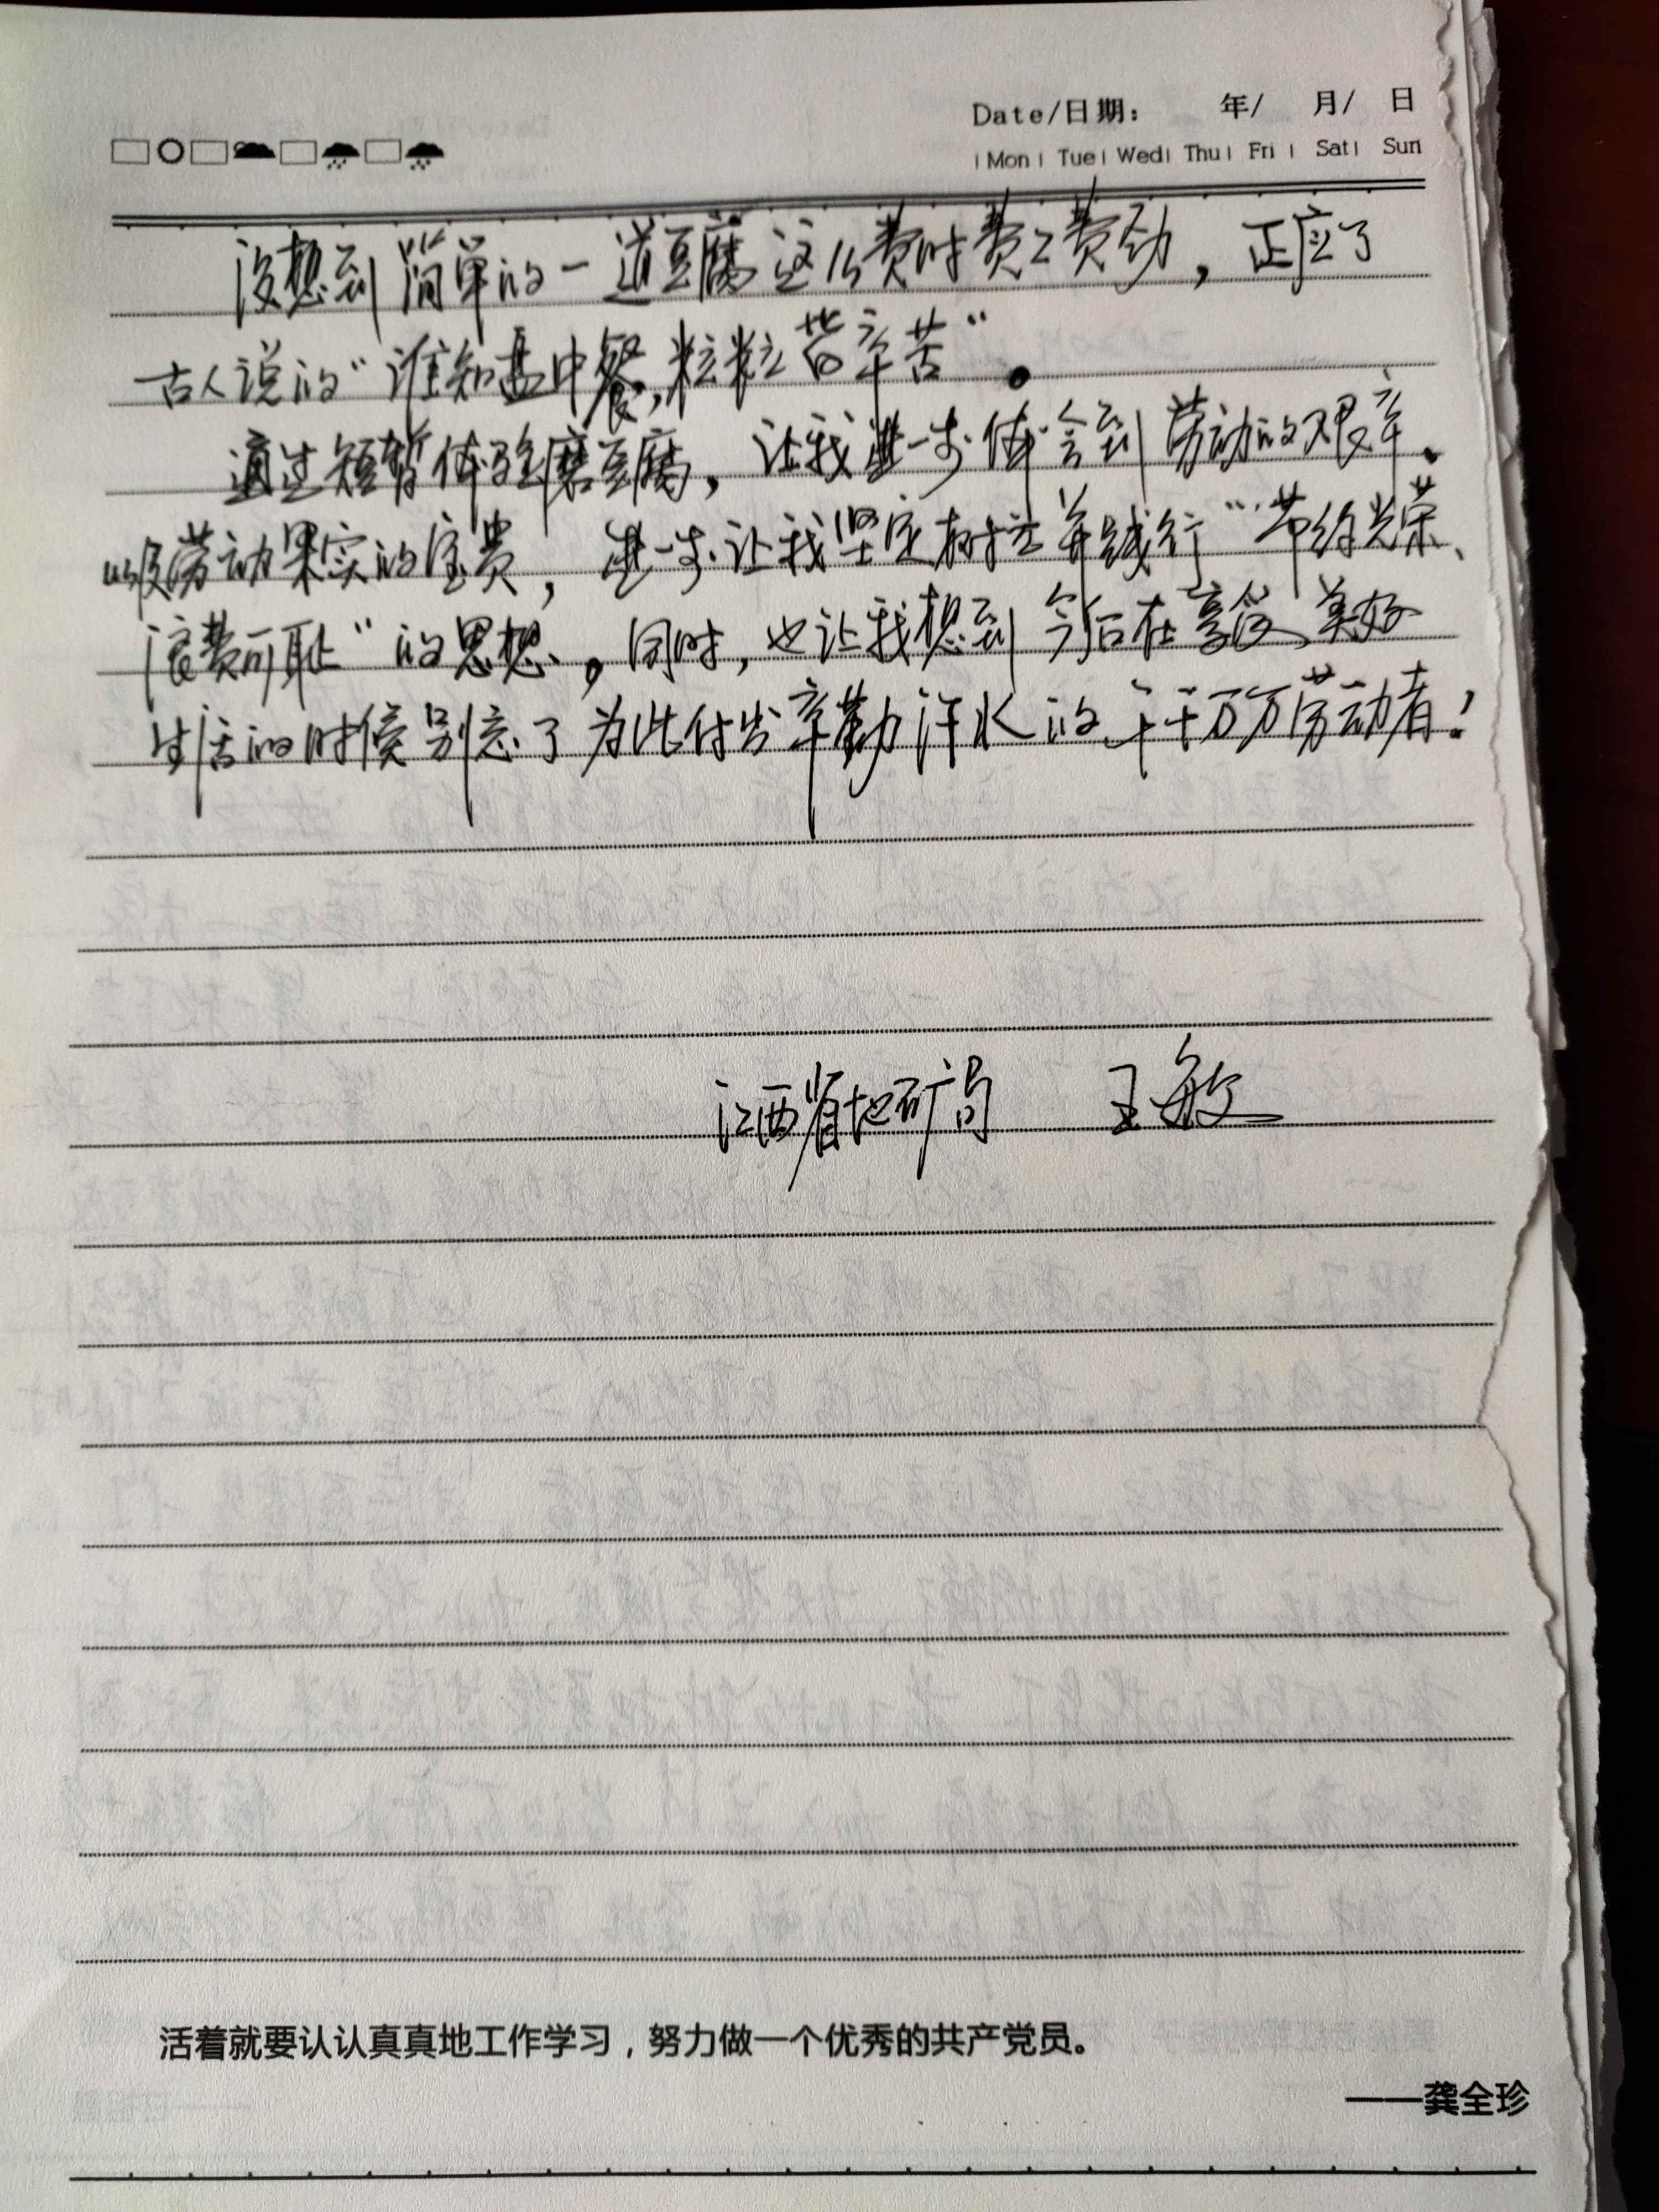 Date/日期: 年/ 月/ 日
Mon Tue Wed Thu Fri Sat Sun
没想到简单的一道豆腐这么费时费工费劲，正应了
古人说的“谁知盘中餐，粒粒皆辛苦”。
通过短暂体验磨豆腐，让我进一步体会到劳动的艰辛、
以及劳动果实的宝贵，进一步让我坚定树立并践行“节约光荣、
浪费可耻”的思想。同时，也让我想到今后在享受美好
生活的时候别忘了为此付出辛勤汗水的千千万万劳动者！
江西省地矿局 王敏
活着就要认认真真地工作学习，努力做一个优秀的共产党员。
——龚全珍